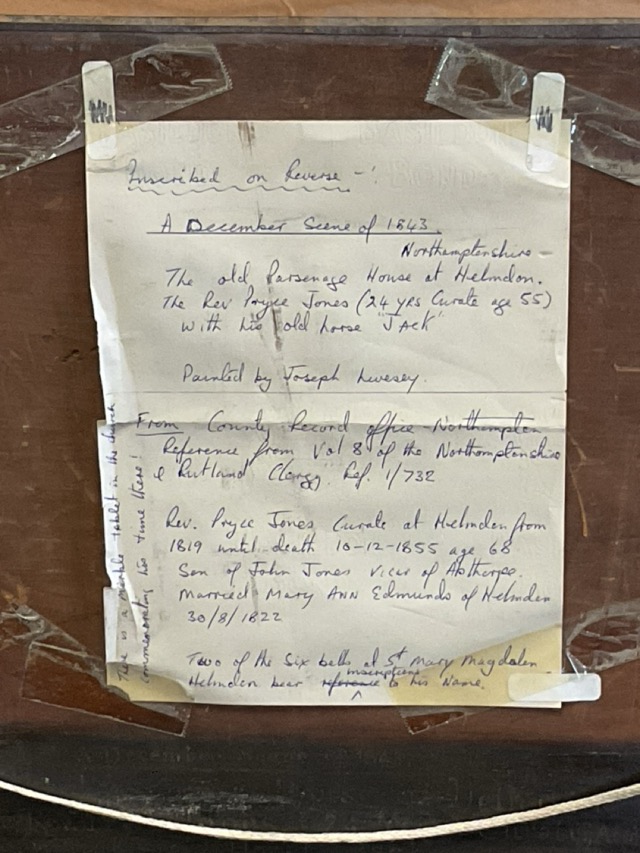 Inscribed on Reverse -:
A December Scene of 1843.
Northamptonshire -
The old Parsonage House at Helmdon.
The Rev Pryce Jones (24 yrs Curate age 55)
with his old horse "JACK"
Painted by Joseph Livesey.
From County Record office - Northampton
Reference from Vol 8 of the Northamptonshire
& Rutland Clergy. Ref. 1/732
Rev. Pryce Jones Curate at Helmdon from
1819 until death 10-12-1855 age 68
Son of John Jones Vicar of Abthorpe.
Married Mary ANN Edmunds of Helmdon
30/8/1822
Two of the Six bells at St Mary Magdalen
Helmdon bear reference inscriptions to his Name.
There is a marble tablet in the church
commemorating his time there!